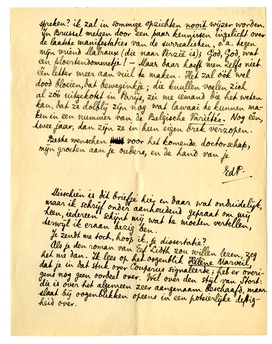 spreken? ik zal in sommige opzichten nooit wijzer worden.
In Brussel melgen door een paar kennissen, ingelicht over
de laatste manifestaties van de surrealisten, o.a. tegen
mijn vriend Malraux (die naar Perzië is); God, God, wat
een bloertendommetje! — Maar daar hoeft men zelfs niet
één letter meer aan vuil te maken. Het zal óók wel
dood bloeien, dat beweginkje; die knullen voelen zich
al zóó uitgekotst in Parijs, zei me iemand die het weten
kan, dat ze dolblij zijn nog wat lawaai te kunnen ma-
ken in een nummer van de Belgische Variétés. Nog één,
twee jaar, dan zijn ze in hun eigen drek verzopen.
Beste menschen voor het komende doctorschap,
mijn groeten aan je ouders, en de hand van je
EdP.
Misschien is dit briefje hier en daar wat onduidelijk,
maar ik schrijf onder aanhoudend gepraat om mij
heen; iedereen schijnt mij wat te moeten vertellen,
terwijl ik eraan bezig ben.
Je zendt me toch, hoop ik, je dissertatie?
Als je den roman van Ed. zou willen lezen, zeg
het me dan. Ik lees op het oogenblik Hélène Marveil,
dat je in dat stuk over Couperus signaleerde; het er overi-
gens nog geen oordeel over. Wel over den stijl van Stort:
die is over het algemeen zeer aangenaam beschaafd, maar
slaat bij oogenblikken opeens in een potsierlijke deftig-
heid over.